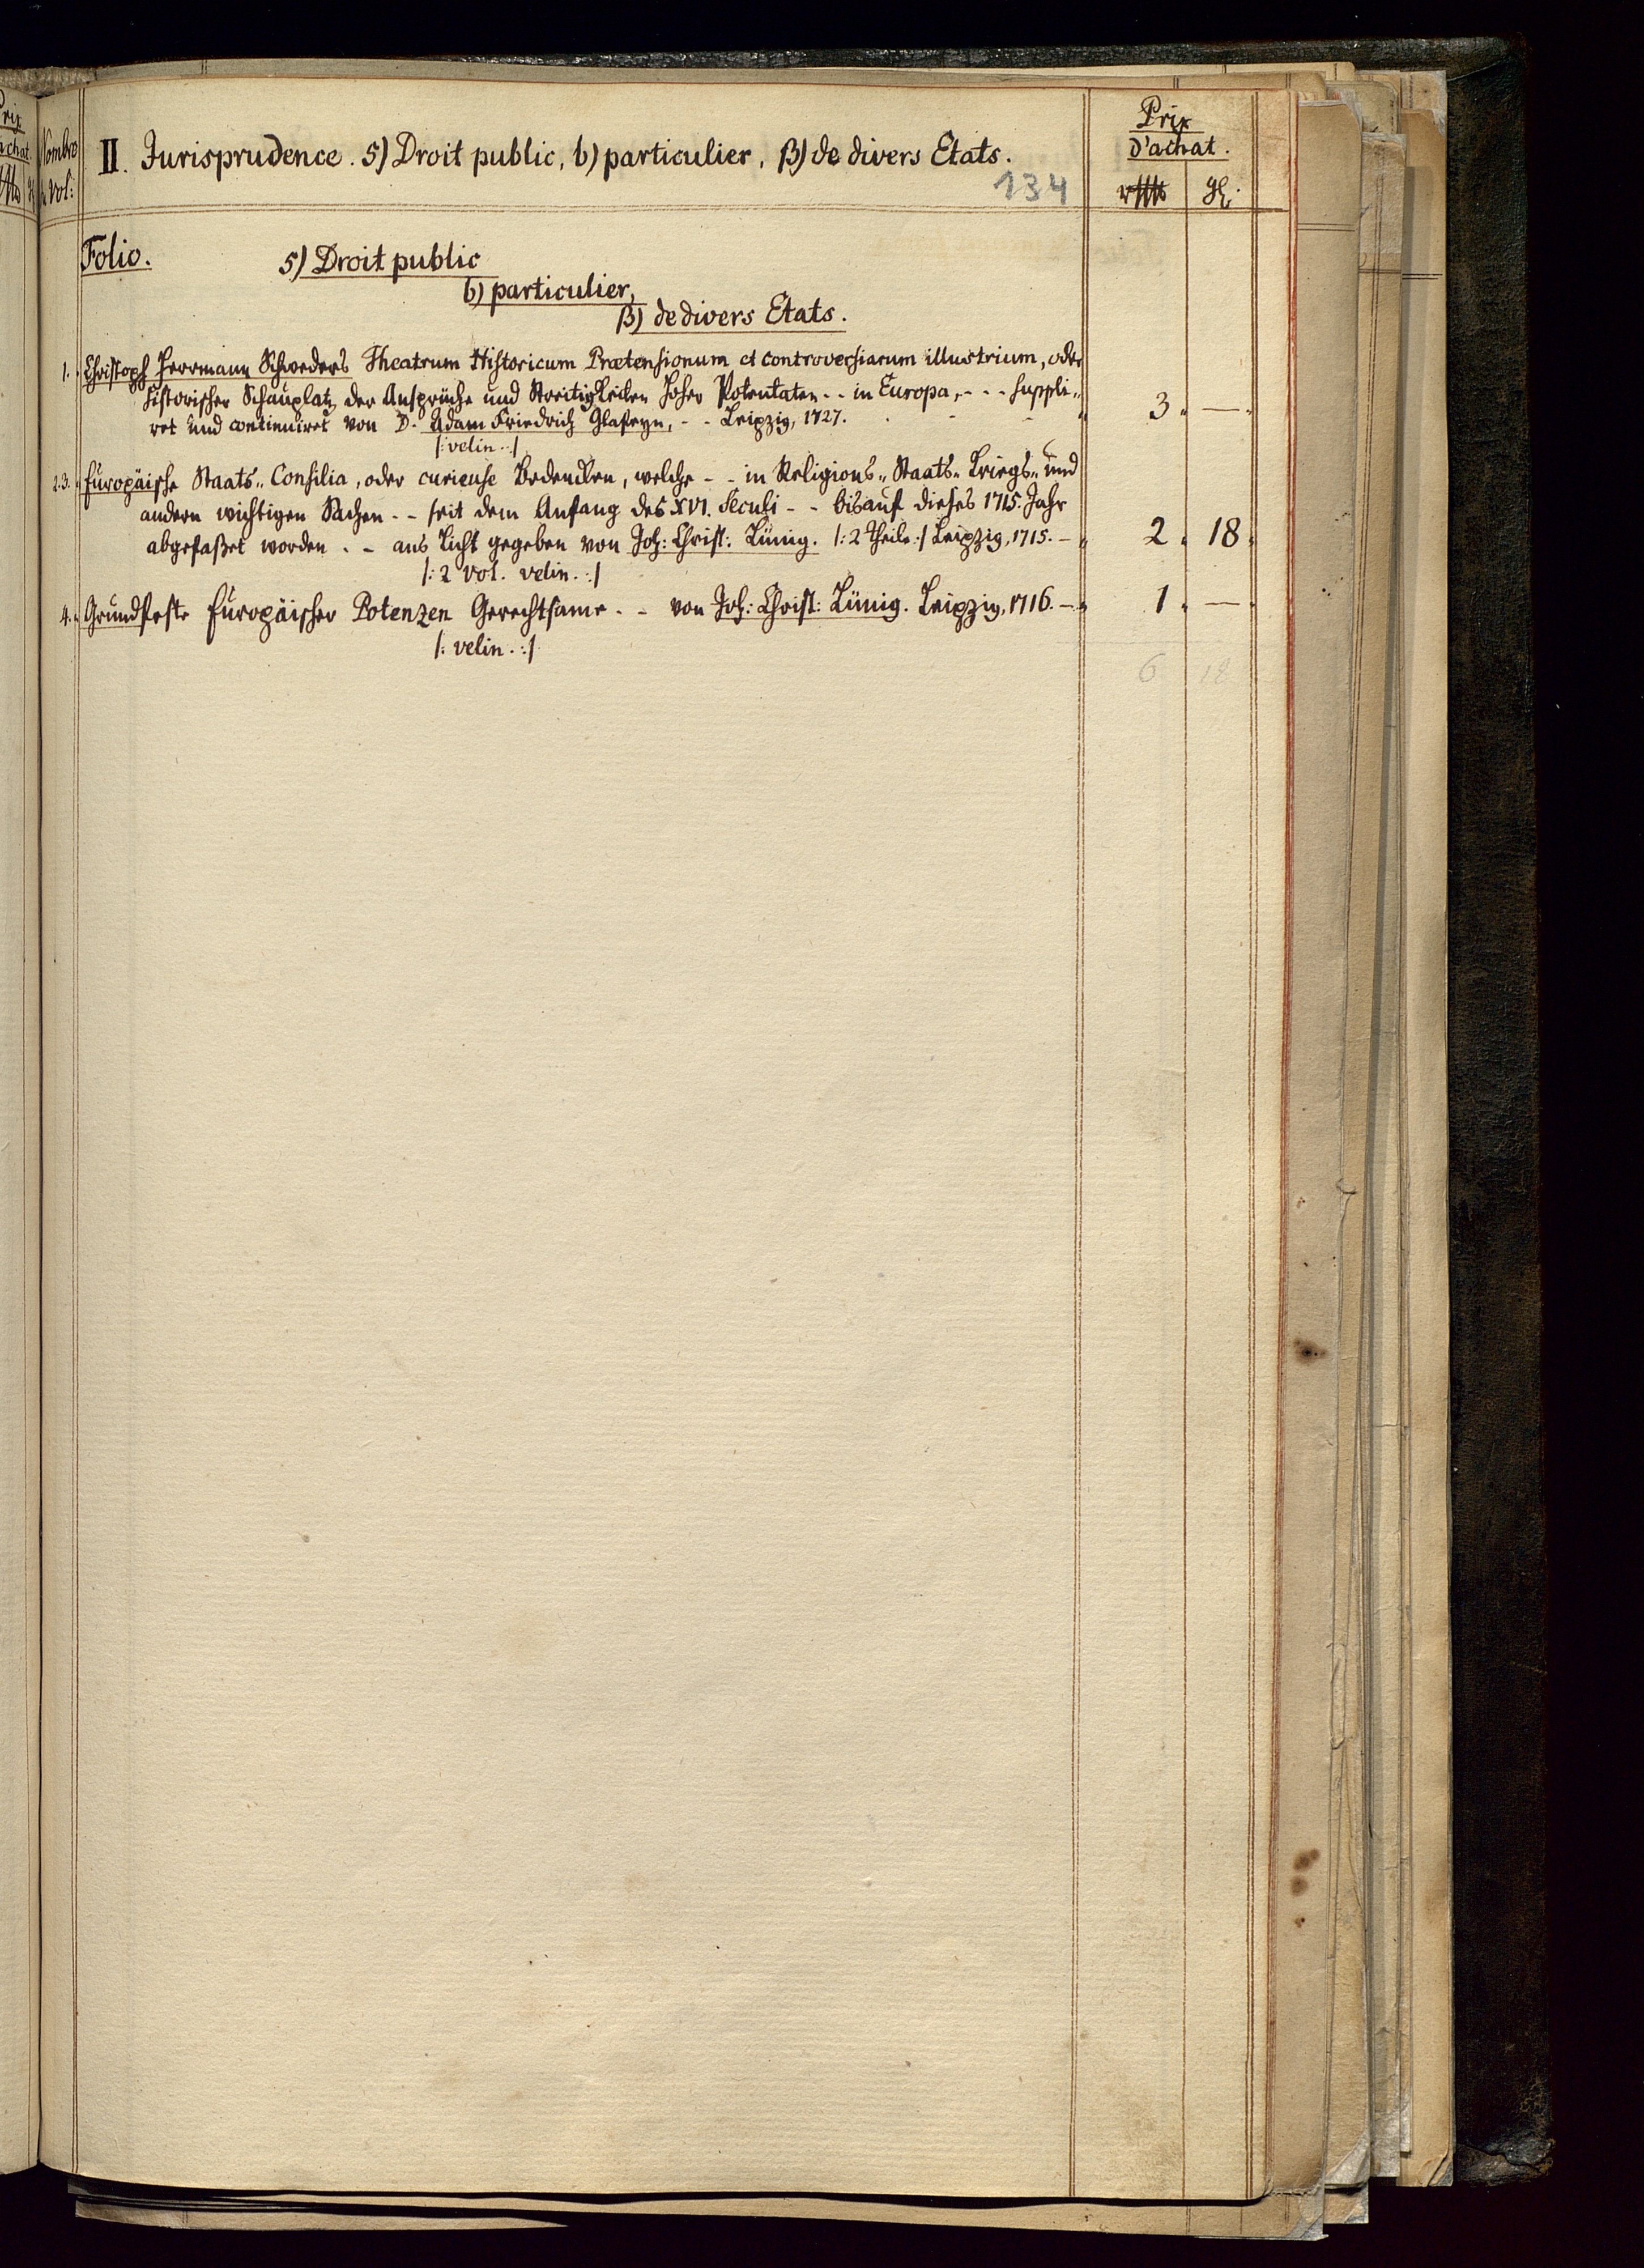 Nombre
de vol:
II. Jurisprudence. 5) Droit public, b) particulier, β) de divers Etats.
134
Prix
d'achat.
rthlr
gl.
Folio.
5) Droit public
b) particulier,
β) de divers Etats.
1. Christoph Herrmann Schweders Theatrum Historicum Prætensionum et controversiarum illustrium, oder
historischer Schauplatz der Ansprüche und Streitigkeiten hoher Potentaten - - in Europa, - - - suppli-
ret und continuiret von D. Adam Friedrich Glafeyn, - - Leipzig, 1727. 3. —
/: velin :/
2.3. Europäische Staats-Consilia, oder curieuse Bedencken, welche - - in Religions- Staats- Kriegs- und
andern wichtigen Sachen - - seit dem Anfang des XVI. Seculi - - bis auf dieses 1715. Jahr
abgefaßet worden - - ans Licht gegeben von Joh: Christ: Lünig. /: 2 Theile :/ Leipzig, 1715. — 2. 18.
/: 2 Vol. velin. :/
4. Grundfeste Europäischer Potenzen Gerechtsame - - von Joh: Christ: Lünig. Leipzig, 1716. — 1. —
/: velin. :/
6 18